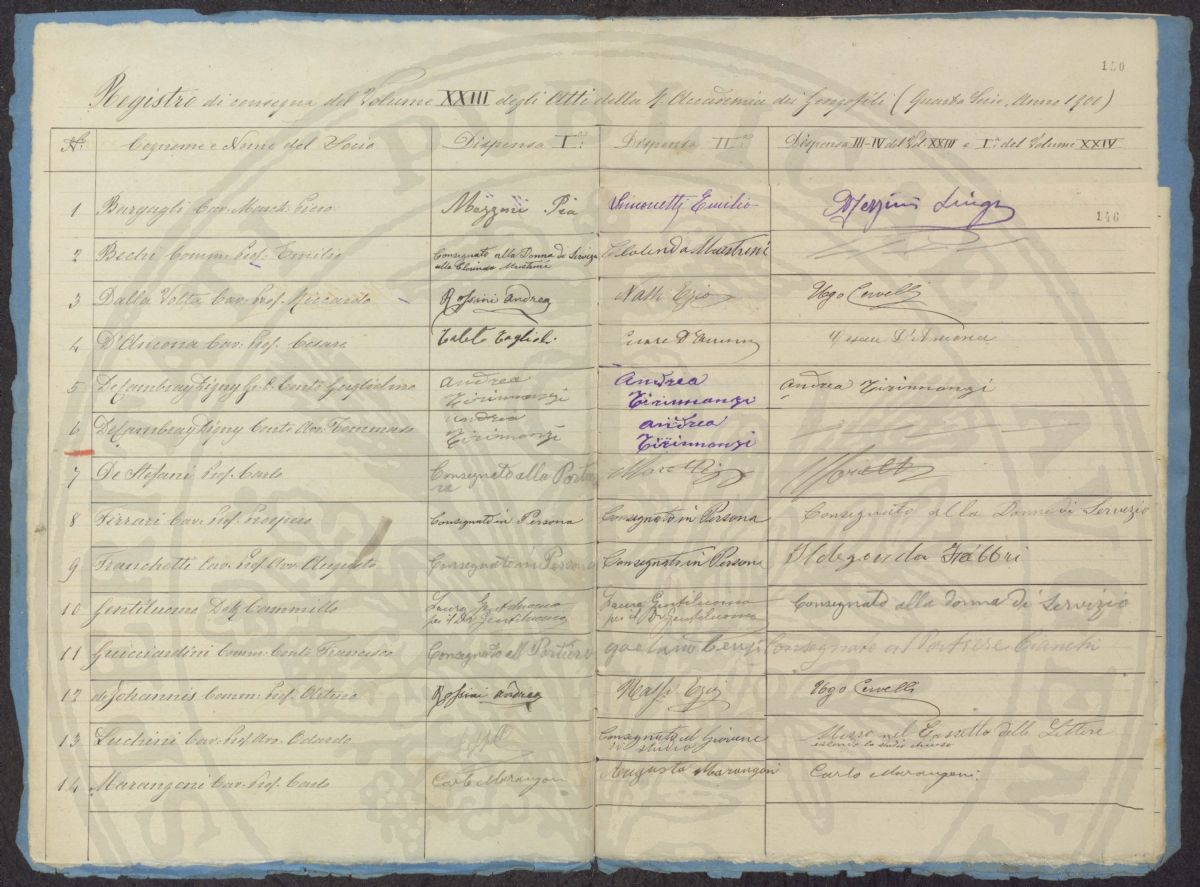 140
Registro di consegna del Volume XXIII degli Atti della R. Accademia dei Georgofili (Quarta Serie. Anno 1900)
N.° Cognome e Nome del Socio Dispensa I.a Dispensa II.a Dispensa III-IV del Vol. XXIII e I.a del Volume XXIV
146
1 Bargagli Cav. March. Piero Mazzoni Pia Simonetti Emilio Luigi
2 Bechi Comm. Prof. Emilio Consegnato alla Donna di Servizio Clorinda Maestrini
alla Clorinda Maestrini
3 Dalla Volta Cav. Prof. Riccardo Rossini Andrea Ezio Ugo Cervelli
4 D'Ancona Cav. Prof. Cesare Cesare D'Ancona Cesare D'Ancona
5 De Cambray Digny G. C. Conte Guglielmo Andrea Tirinnanzi Andrea Tirinnanzi Andrea Tirinnanzi
6 De Cambray Digny Conte Avv. Tommaso Andrea Tirinnanzi Andrea Tirinnanzi
7 De Stefani Prof. Carlo Consegnato alla Portiera
8 Ferrari Cav. Prof. Prospero Consegnato in Persona Consegnato in Persona Consegnato alla Donna di Servizio
9 Franchetti Cav. Prof. Avv. Augusto Consegnato in Persona Consegnato in Persona Ildegonda Fabbri
10 Gentiluomo Dott. Cammillo Laura Gentiluomo Laura Gentiluomo Consegnato alla donna di Servizio
per il Dr Gentiluomo per il Dr Gentiluomo
11 Guicciardini Comm. Conte Francesco Consegnato al Portiere Gaetano Consegnato al Portiere Cianchi
12 de Johannis Comm. Prof. Arturo Rossini Andrea Ezio Ugo Cervelli
13 Luchini Cav. Prof. Avv. Odoardo Consegnato al Giovine Messo nel Cassetto delle Lettere
di studio essendo lo studio chiuso
14 Marangoni Cav. Prof. Carlo Carlo Marangoni Augusta Marangoni Carlo Marangoni